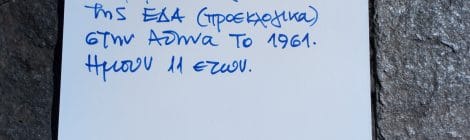 της ΕΔΑ (προεκλογικά)
στην Αθήνα το 1961.
Ήμουν 11 ετών.